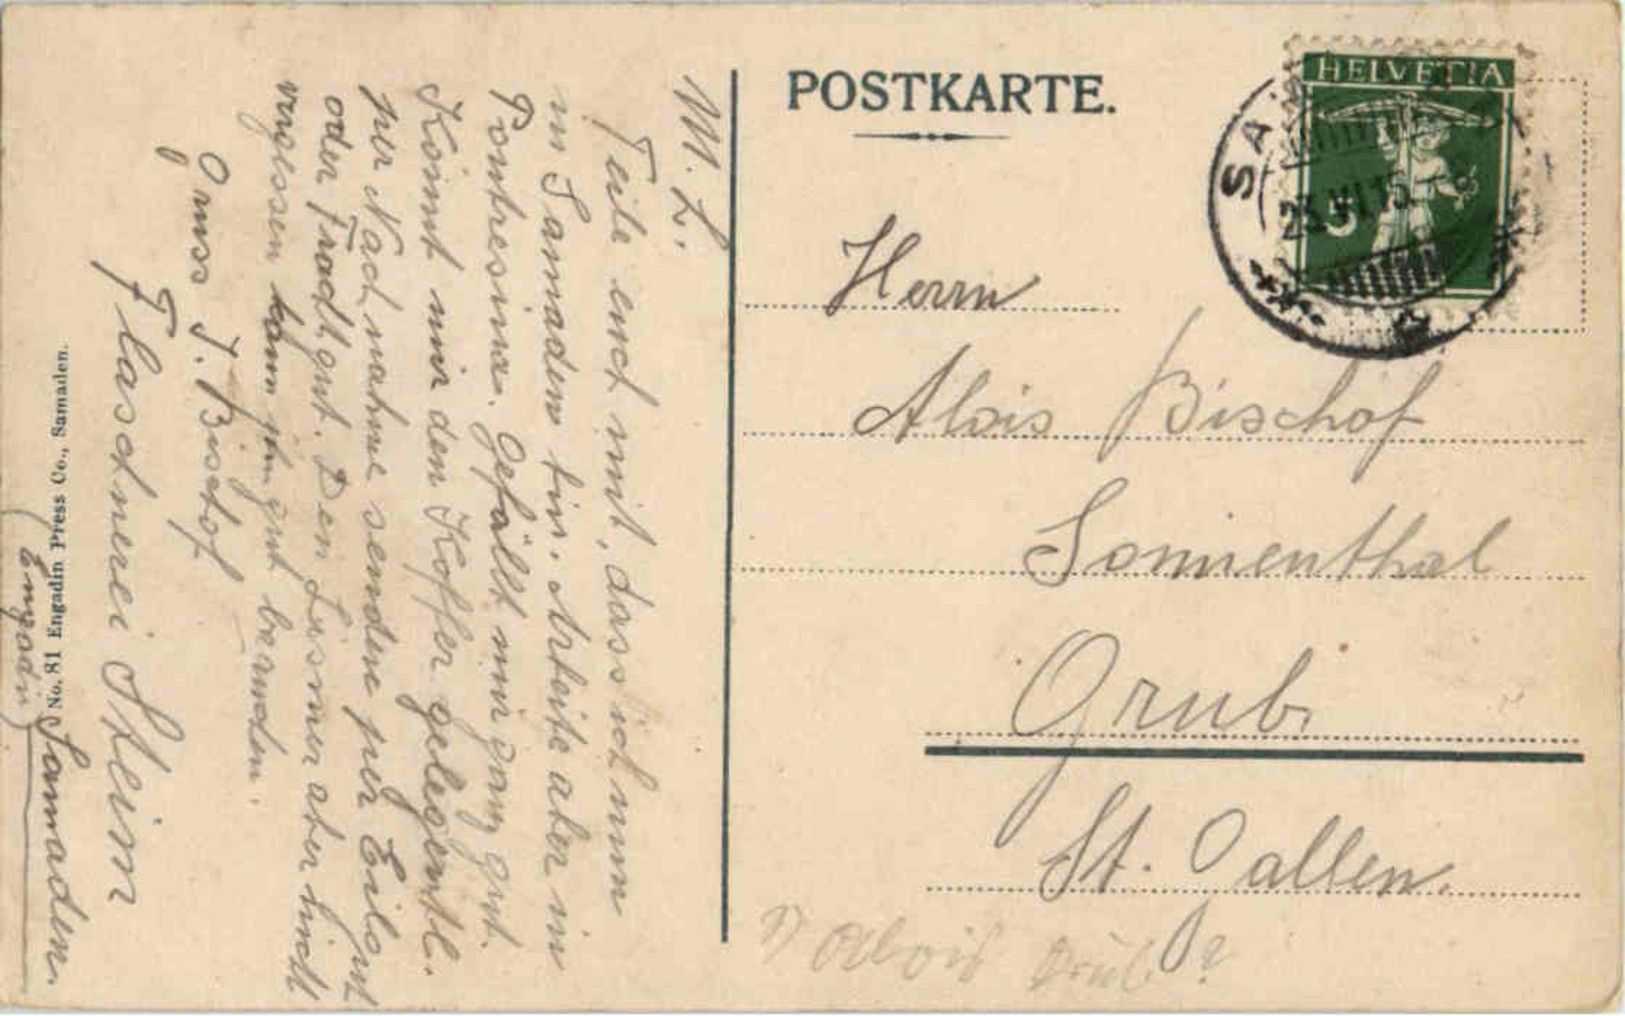 POSTKARTE.
HELVETIA
5
SA
23.VI.15.
Herrn
Alois Bischof
Sonnenthal
Grub.
St. Gallen.
Alois Grub
M. L.
Teile euch mit, dass ich nun
in Samaden bin. Arbeite aber in
Pontresina. Gefällt mir ganz gut.
Könnt mir den Koffer gelegentl.
per Nachnahme senden per Eilgut
oder Frachtgut. Den Lismer aber nicht
vergessen kann ihn gut brauchen.
Gruss J. Bischof
Flaschnerei Heim
Samaden.
(Engadin)
No. 81 Engadin Press Co., Samaden.